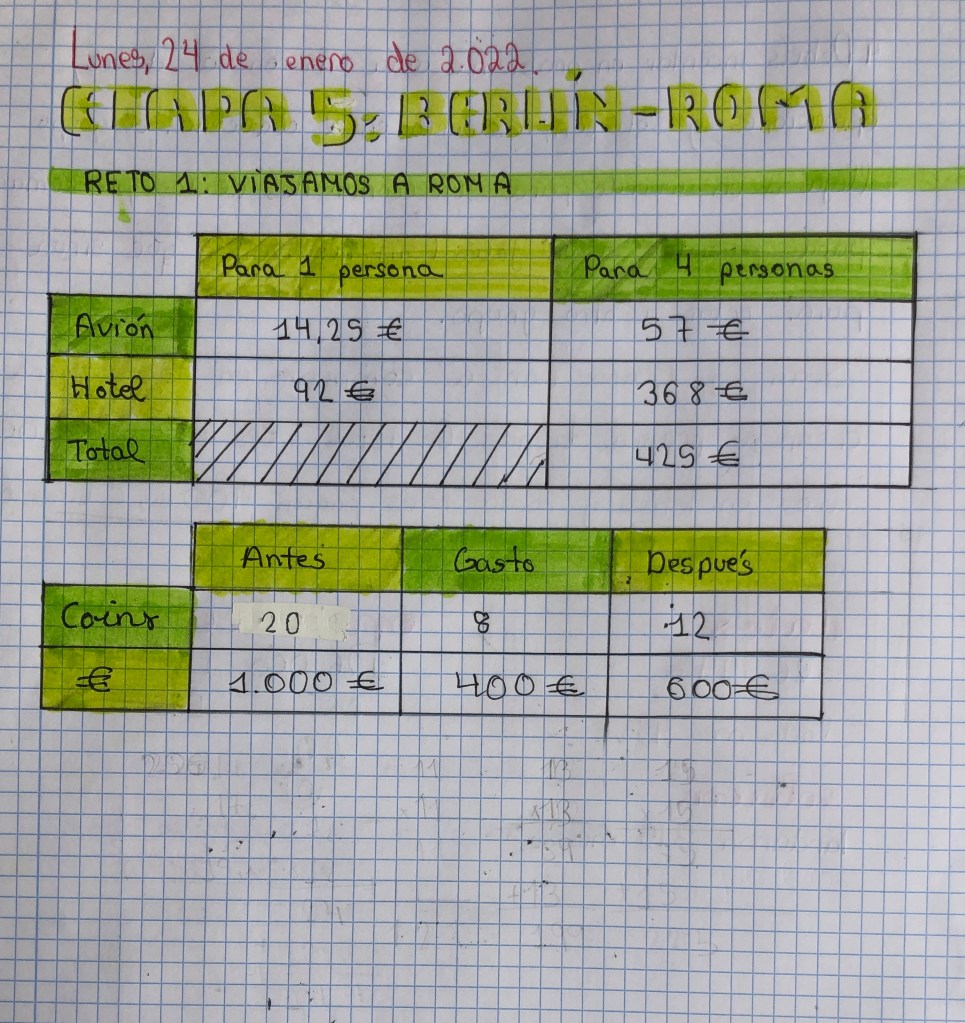 Lunes, 24 de enero de 2.022.
ETAPA 5: BERLÍN - ROMA
RETO 1: VIAJAMOS A ROMA
Para 1 persona Para 4 personas
Avión 14,25 € 57 €
Hotel 92 € 368 €
Total 425 €
Antes Gasto Después
Coins 20 8 12
€ 1.000 € 400 € 600 €